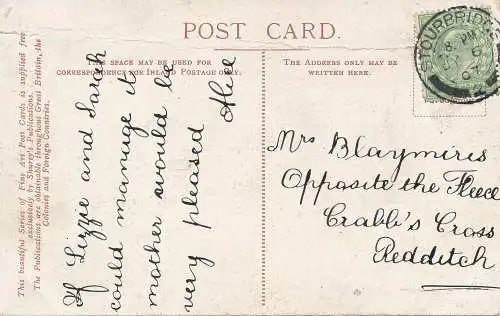 POST CARD.
THE SPACE MAY BE USED FOR
CORRESPONDENCE FOR INLAND POSTAGE ONLY.
THE ADDRESS ONLY MAY BE
WRITTEN HERE.
This beautiful Series of Fine Art Post Cards is supplied free
exclusively by Shurey's Publications.
The Publications are obtainable throughout Great Britain, the
Colonies and Foreign Countries.
If Lizzie and Sarah
could manage it
mother would be
very pleased Alice
Mrs Blaymires
Opposite the Fleece
Crabb's Cross
Redditch
STOURBRIDGE